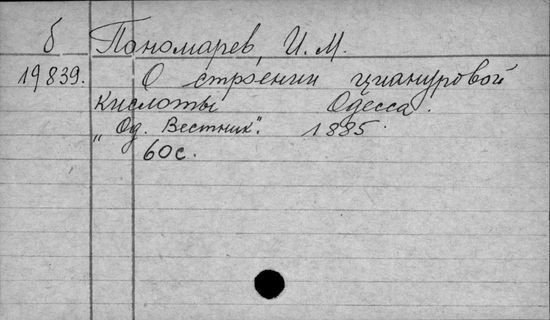 б Пономарев, И. М.
19839. О строении циануровой
кислоты Одесса.
„Од. Вестник“. 1885.
60 с.